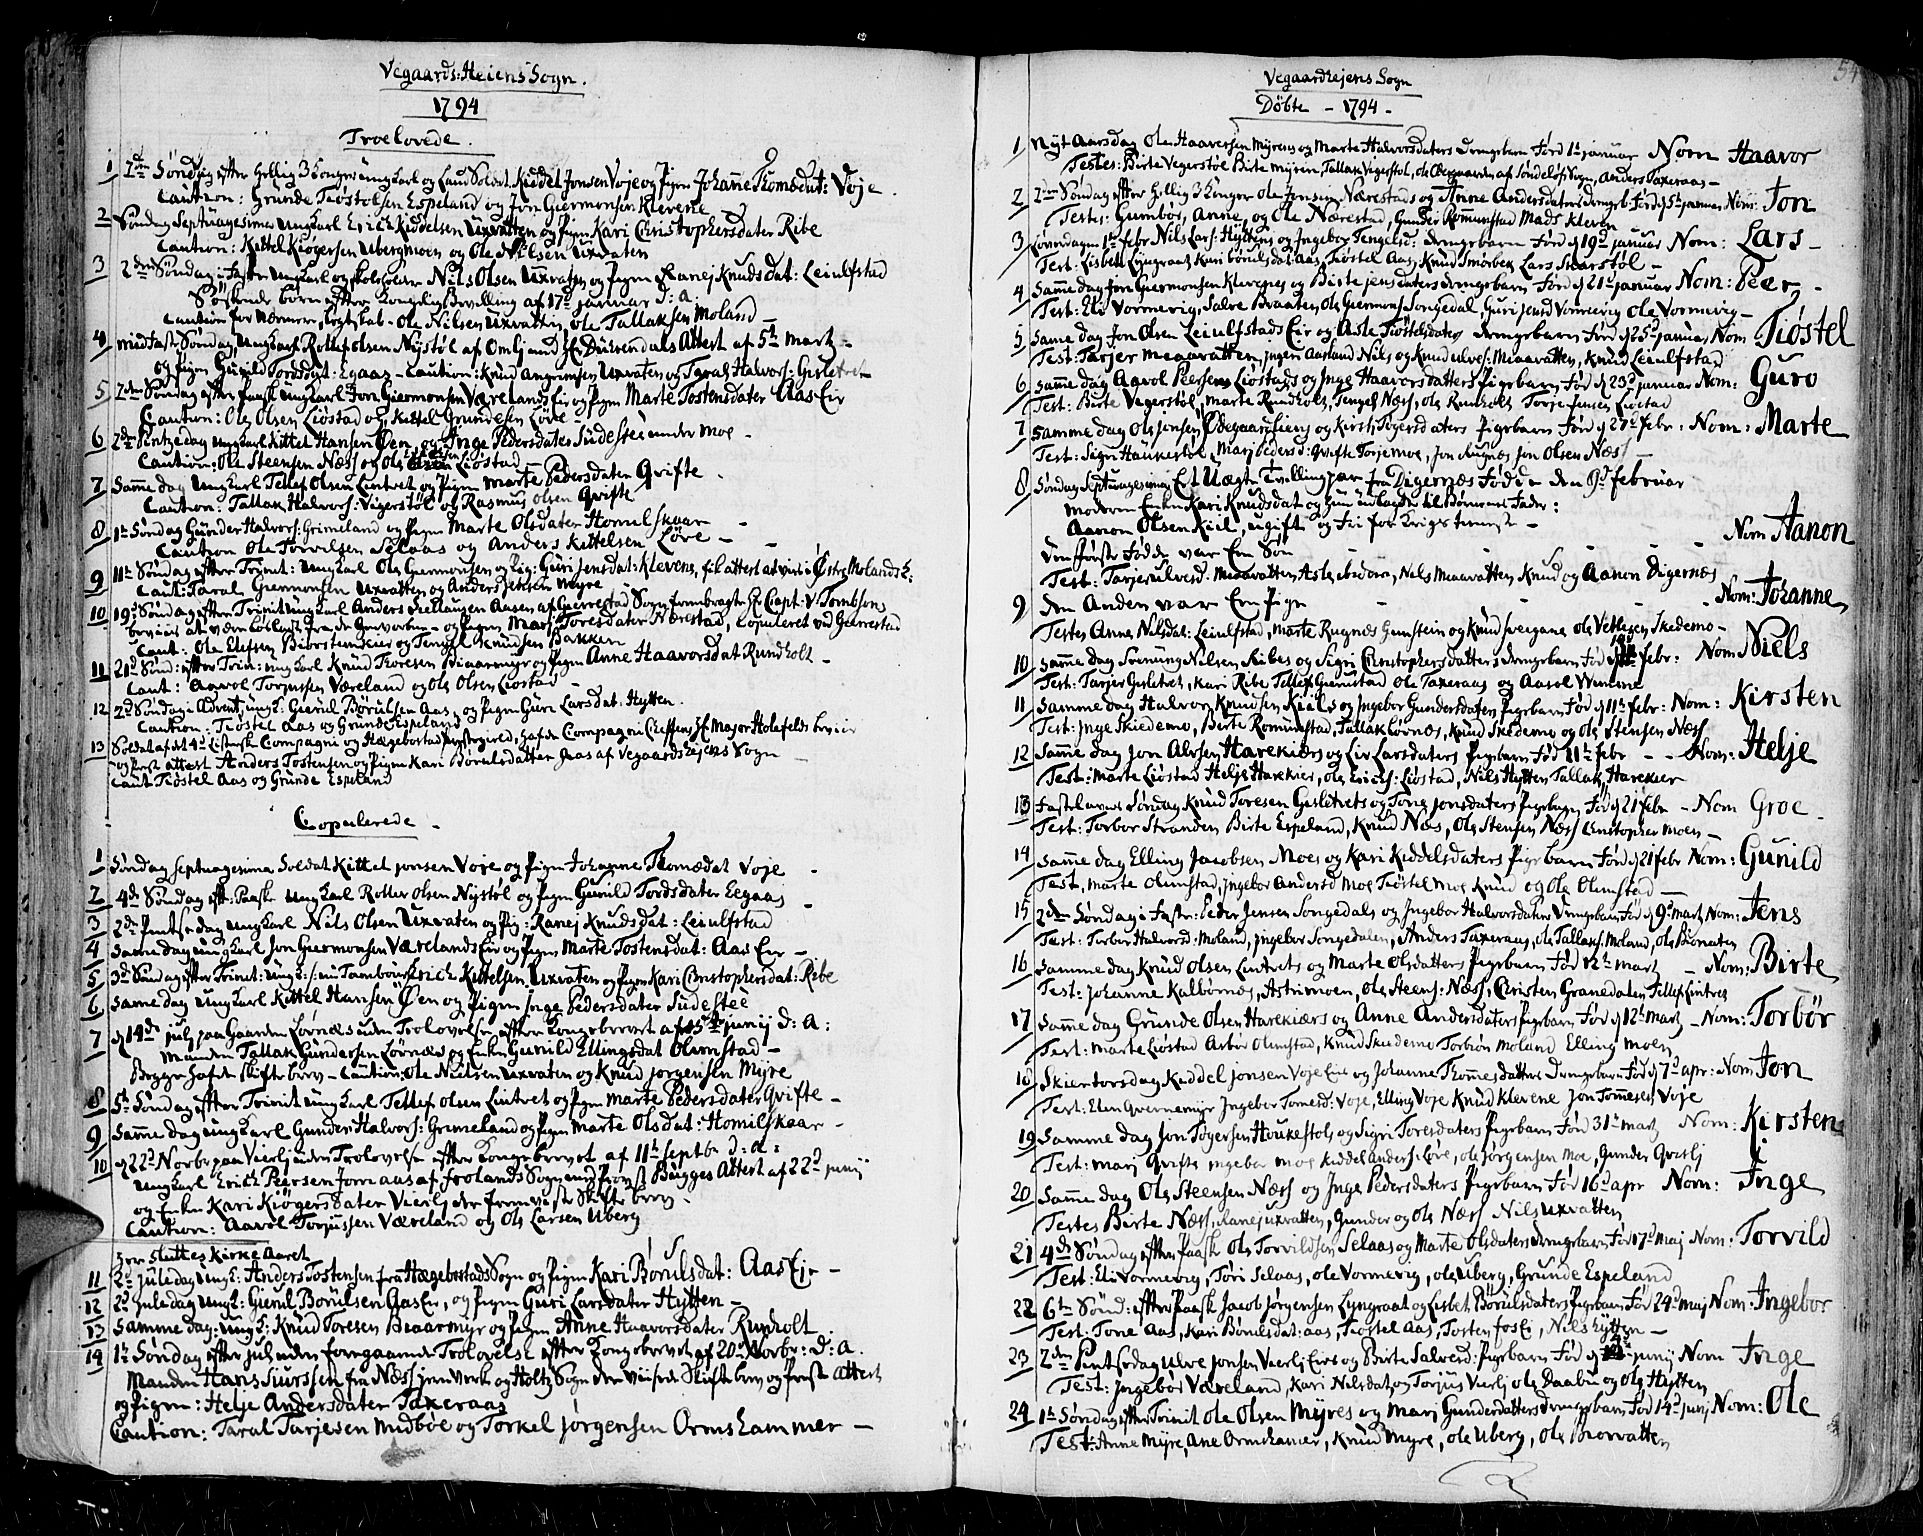 Vegaards-Heiens Sogn.
1794
Troelovede.
1 2den Søndag efter Hellig 3 Konger ungkarl og Land Soldat Kiddel Jonsen Voje og Pigen Johanne Thomædat: Voje
Caution: Grunde Tiøstolsen Espeland og Jon Giermonsen Klevene
2 Søndag Septuagesima Ungkarl Erich Kiddelsen Uxvatten og Pigen Kari Christophersdater Ribe
Caution: Kittel Kiøgersen Ubergmoen og Ole Nilsen Uxvaten
3 2den Søndag i Faste Ungkarl og skoleholder Nils Olsen Uxvaten og Pigen Ranej Knudsdat: Leiulfstad
Søskende børn efter Kongelig Bevilling af 17d januar d: a.
Caution for nærmere Slegtskab - Ole Nilsen Uxvatten, Ole Tallaksen Moland -
4 midfaste Søndag, Ungkarl Rollef Olsen Nystøl af Omlj med Hr Duvendals Attest af 5te Martz
og Pigen Gunild Tordsdat: Egaas - Caution: Knud Ansgrimsen Uxvaten og Taral Halvors: Gusletret
5 2den Søndag efter Paask Ungkarl Jon Giermonsen Værelands Eie og Pigen Marte Tostensdater Aas Eie
Caution: Ole Olsen Liøstad og Kittel Grundesen Løve -
6 2den Pintzedag Ungkarl Kittel Hansen Øen og Inge Pedersdater Sudestee under Moe -
Caution: Ole Steensen Næss og Ole Liøstad -
7 Samme dag Ungkarl Tellef Olsen Lintvet og Pigen Marte Pedersdater Qvifte
Caution: Tallak Halvors: Vigerstøl og Rasmus Olsen Qvifte
8 1te Søndag Gunder Halvors: Grimeland og Pigen Marte Olsdater Homelskaar -
Caution Ole Torvilsen Selaas og Anders Kittelsen Løve -
9 11te Søndag efter Trinit: Ungkarl Ole Giermonsen og Pig: Guri Jensdat: Klevene, fik attest at vies i Østre Molands K:
Caut: Taral Giermonsen Uxvatten og Anders Jensen Myre
10 19de Søndag efter Trinit Ungkarl Anders Siellaugen Aasen af Gierrestad Sogn frembragte Hr Capt: v. Tombsons
beviis at være løsladt fra de Gevorbne - og Pigen Mari Toresdater Nærestad, Copuleret ved Gierrestad
Caut: Ole Elefsen Biorstemkier og Tengel Knudsen Bakken
11 21de Sønd: efter Trin: ungkarl Knud Thoresen Biaarmyr og Pigen Anne Haavorsdat Rundholt -
Caut: Aavol Torjussen Væreland og Ole Olsen Liøstad -
12 2de Søndag i Advent, ungk: Gierul Børulsen Aas, og Pigen Guri Larsdat: Hytten.
Caution: Tiøstel Aas og Grunde Espeland
13 Soldat af det 4de Listersk Compagni og Hægebostad Præstegield, hafde Compagni Cheffens Hr Major Holefelds beviis
og Prest attest Anders Tostensen og Pigen Kari Børulsdatter Aas af Vegaardshejens Sogn
Caut Tiøstel Aas og Grunde Espeland
Copulerede -
1 Søndag Septuagesima Soldat Kittel Jonsen Voje og Pigen Johanne Thomædat Voje
2 4de Søndag efter Paask Ungkarl Rollev Olsen Nystøl og Pigen Gunild Tordsdater Eegaas
3 2den Pintsedag Ungkarl Nils Olsen Uxvaten og Pig: Ranej Knudsdat: Leiulfstad
4 Samme dag ungkarl Jon Giermonsen Værelands Eie og Pigen Marte Tostensdat: Aas Eie -
5 3de Søndag efter Trinit: Ungk: Tambour Erich Kittelsen Uxvaten og Pigen Kari Christophersdat: Ribe
6 samme dag Ungkarl Kittel Hansen Øen og Pigen Inge Pedersdater Sudestee
7 d 14de julj paa Gaarden Lørnæs uden Trolovelse efter Kongebrevet af 15de junij d: a:
Manden Tallak Gundersen Lørnæs og Enken Gunild Ellingsdat Olmstad -
Begge hafde Skifte brev - Caution: Ole Nielsen Uxvaten og Knud Jorgensen Myre
8 5te Søndag efter Trinit Ungkarl Tellef Olsen Lintvet og Pigen Marte Pedersdater Qvifte -
9 Samme dag Ungkarl Gunder Halvors: Grimeland og Pigen Marte Olsdat: Homilskaar -
10 d 22de Novbr paa Vierlj uden Trolovelse efter Kongebrevet af 11te Septbr d: a:
Ungkarl Erich Peersen Jornaas af Frolands Sogn med Provst Bugges Attest af 22de junij
og Enken Kari Kiøgersdater Vierlj der fremviste Skifte brev -
Caution: Aavol Torjussen Væreland og Ole Larsen Uberg
her sluttes Kirke Aaret
11 2de juledag Ungk: Anders Tostensen fra Hægebostad Sogn og Pigen Kari Børulsdat: Aas Eje -
12 2de juledag Ungk: Gierul Børulsen Aas Eie, og Pigen Guri Larsdater Hytten -
13 Samme dag: Ungk: Knud Toresen Biaarmyr og Pigen Anne Haavorsdater Runholt
14 1te Søndag efter jul uden foregaaende Trolovelse efter Kongebrevet af 20de Novbr: d: a.
Manden Hans Siurssen fra Næss jernverk og Holtz Sogn der viisede Skifte brev og Prest Attest
og Pigen: Helje Andersdater Taxeraas
Caution: Taral Tarjesen Mudboe og Torkel Jørgensen Ormshammer -
54
Vegaardhejens Sogn
Døbte - 1794 -
1 Nyt Aarsdag Ole Haaversen Myrens og Marte Halvorsdaters Drengebarn Fød 1te januar Nom Haavor
Testes: Birte Vegerstøl Birte Myren, Tallak Vegerstøl, Ole Obegaarden af Søndeløfs Sogn, Anders Taxeraas -
2 2den Søndag efter Hellig 3 Konger Ole Jonsen Nærestads og Anne Andersdaters drengeb: Fød d 5te januar Nom: Jon
Testes: Gumbør, Anne, og Ole Nærestad, Gunder Romunstad Mads Kleven
3 Løverdagen 1te febr Nils Lars: Hyttens og Ingebor Tengelsd: Drengebarn Fød d 19de januar Nom: Lars -
Test: Lisbet Lyngraat, Kari børulsdat: aas, Tiøstel Aas, Knud Smørbek Lars Stærstøl -
4 Samme dag Jon Giermonsen Klevenes og Birte jensdaters drengebarn Fød d 21de januar Nom: Peer -
Test: Eli Vormevig, Salve Braaten, Ole Giermons: Songedal, Guri jensd Vormevig Ole Vormevig -
5 Samme dag Jon Olsen Leiulfstads Eie og Asle Tiøstelsdater Drengebarn Fød d 25de januar Nom Tiøstel
Test: Tarjer Meaavatten, Ingeri Aasland Nils og Knud ulves: Meaavatten, Knud Leiulfstad
6 Samme dag Aavol Peersens Liøstads og Inge Haavorsdatters Pigebarn Fød d 23de januar Nom: Guro
Test: Birte Vegerstøl, Marte Rundholt, Tengel Næss, Ole Runholt Torje Jensen Liøstad
7 Samme dag Ole Jonsen Ødegaardsens og Kirsti Togersdaters Pigebarn Fød d 27de febr: Nom: Marte
Test: Signi Haukestøl, Marj Pedersd: Qvifte Torje Moe, Jon Rugnæs Jon Olsen Næss -
8 Søndag Septuagesima Et Uægte Tvillingpar fra Digernæs Fødde den 9de Februar
Moderen Enken Kari Knudsdat og hun udlagde til Børnenes Fader:
Aanon Olsen Kiil, ugift og Frj for Krigs tieneste -
Den første Fødde var Een Søn - - - Nom Aanon
Test: Tarje Ulvesd: Meaavatten, Asle ibidem, Nils Meaavatten, Knud og Aanon Digernæs
9 Den Anden var Een Pige - - - Nom: Johanne
Testes Anne Nilsdat: Leiulfstad, Marte Rugnæs Gunstein og Knud sveigane Ole Vetlesen Skedemo -
10 Samme dag Svenung Nilsen Ribes og Signi Christophersdatters Drengebarn Fød febr: Nom Niels
Test: Tarjer Gusletret, Kari Ribe Tellef Gierustad Ole Taxeraas og Aavol Vennevre
11 Samme dag Halvor Knudsen Kiels og Ingebor Gundersdaters Pigebarn Fød d 11te febr: Nom: Kirsten
Test: Inge Skiedemo, Birte Romunstad, Tallak Lovnes, Knud Skedemo og Ole Stensen Næss
12 Samme dag Jon Alvsen Harekiærs og Liv Larsdaters Pigebarn Fød 11te febr - - Nom: Helje
Test: Marte Liøstad Helje Harekier, Ole Erichs: Liøstad, Nils Hytten, Tallak Harekier
13 Fastelavens Søndag Knud Toresen Gusletrets og Tone Jonsdaters Pigebarn Fød d 21 febr - Nom Groe -
Test: Torbor Stranden Birte Espeland, Knud Næs, Ole Stensen Næss Christopher Moen -
14 Samme dag Elling Jacobsen Moes og Kari Kiddelsdaters Pigebarn Fød d 21 febr Nom: Gunild
Test, Marte Olmstad, Ingebor Andersd Moe Tiøstel Moe Knud og Ole Olmstad -
15 2den Søndag i Faste: Peder Jensen Songedals og Ingebor Halvorsdaters Drengebarn Fød d 9de Martz Nom: Jens
Test: Torbor Halvorsd: Moland, Ingebor Songedalen, Anders Taxeraas, Ole Tallaks: Moland, Ole Biorvaten
16 Samme dag Knud Olsen Lintvets og Marte Olsdatters Pigebarn Fød 12te Martz - Nom: Birte
Test: Johanne Kalbørnæs, Astri Moen, Ole Steens: Næss, Christen Granedalen Tellef Lintvet
17 Samme dag Grunde Olsen Harekiærs og Anne Andersdaters Pigebarn Fød d 12te Martz - Nom: Torbør
Test: Marte Liøstad Asbor Olmstad, Knud Skiedemo Torbiøn Moland Elling Moen
18 Skiertorsdag Kiddel Jonsen Voje Eie og Johanne Thommesdatters Drengebarn Fød d 7de apr: Nom Jon
Test: Elen Qvernemyr Ingebor Tomesd: Voje, Elling Voje Knud Klevene Jon Tommes: Voje
19 Samme dag Jon Togersen Houkestøls og Signi Toresdaters Pigebarn Fød 31te Martz Nom: Kirsten
Test: Marj Qvifte Ingebor Moe Kiddel Anders: Løve, Ole Jørgensen Moe, Gunder Qverlj
20 Samme dag Ole Steensen Næss og Inge Pedersdaters Pigebarn Fød 16de apr Nom: Inge
Testes Birte Næss, Ranej Uxvatten, Gunder og Ole Næss Nils Uxvatten
21 4de Søndag efter Paask Ole Torvildsen Selaas og Marte Olsdaters Drengebarn Fød 17de Maj Nom: Torvild
Test: Eli Vormevig, Tøri Selaas, Ole Vormevig, Ole Uberg, Grunde Espeland
22 6te Sønd: efter Paask Jacob Jørgensen Lyngraat og Lisbet Børulsdaters Pigebarn Fød 24de Maj Nom: Ingebor
Test: Tone Aas, Kari Børulsdat: aas, Tiøstel Aas, Tosten Fossli, Nils Hytten -
23 2den Pintsedag Ulve Jonsen Vierlj Eies og Birte Salvesd: Pigebarn Fød d 4de junij Nom Inge
Test: Ingebor Væreland, Kari Nilsdat, og Torjus Vierlj Ole Daabu og Ole Hytten
24 1te Søndag efter Trinit Ole Olsen Myres og Marj Gunderdatters Drengebarn Fød 14de junij Nom: Ole
Test: Anne Myre, Ane Ormshamer, Knud Myre, Ole Uberg, Ole Biorvatten